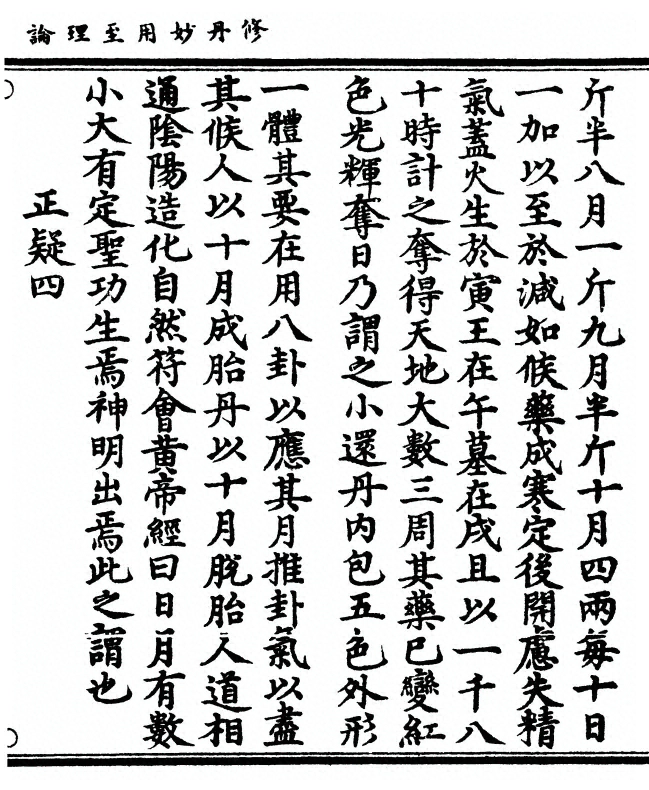 修丹妙用至理論
斤半八月一斤九月半斤十月四兩每十日
一加以至於減如候藥成寒定後開慮失精
氣蓋火生於寅王在午墓在戌且以一千八
十時計之奪得天地大數三周其藥已變紅
色光輝奪日乃謂之小還丹內包五色外形
一體其要在用八卦以應其月推卦氣以盡
其候人以十月成胎丹以十月脫胎人道相
通陰陽造化自然符會黄帝經曰日月有數
小大有定聖功生焉神明出焉此之謂也
正疑四